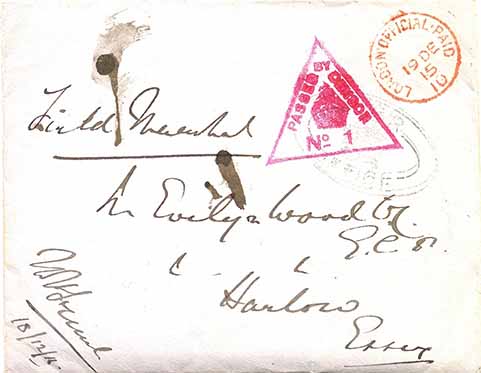 LONDON OFFICIAL PAID
19 DE 15
PASSED BY CENSOR
No 1
Field Marshal
Sir Evelyn Wood VC
G.C.B.
Harlow
Essex